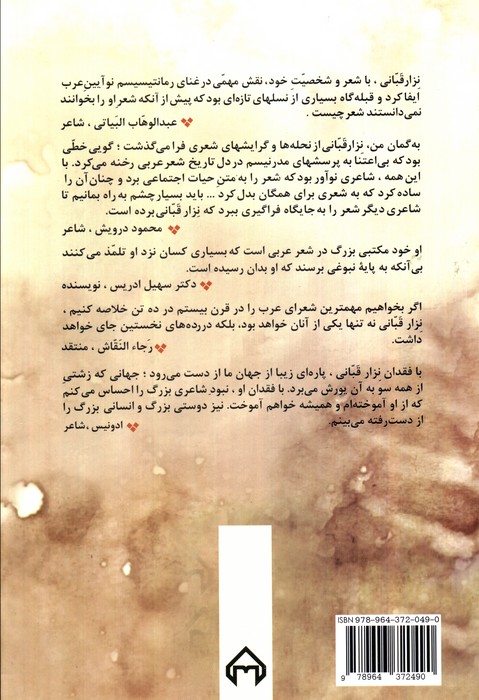 نزار قبّانی ، با شعر و شخصیّتِ خود، نقش مهمّی در غنای رمانتیسیسم نوآیین عرب
ایفا کرد و قبله‌گاه بسیاری از نسلهای تازه‌ای بود که پیش از آنکه شعر او را بخوانند
نمی‌دانستند شعر چیست .
عبدالوهّاب البَیاتی ، شاعر
به‌گمان من، نزار قبّانی از نحله‌ها و گرایشهای شعری فرا می‌گذشت ؛ گویی خطّی
بود که بی‌اعتنا به پرسشهای مدرنیسم در دل تاریخ شعر عربی رخنه می‌کرد. با
این همه ، شاعری نوآور بود که شعر را به متنِ حیات اجتماعی برد و چنان آن را
ساده کرد که به شعری برای همگان بدل کرد ... باید بسیار چشم به راه بمانیم تا
شاعری دیگر شعر را به جایگاه فراگیری ببرد که نزار قبّانی برده است.
محمود درویش ، شاعر
او خود مکتبی بزرگ در شعر عربی است که بسیاری کسان نزد او تلمّذ می‌کنند
بی‌آنکه به پایهٔ نبوغی برسند که او بدان رسیده است.
دکتر سهیل ادریس ، نویسنده
اگر بخواهیم مهمترین شعرای عرب را در قرن بیستم در ده تن خلاصه کنیم ،
نزار قبّانی نه تنها یکی از آنان خواهد بود، بلکه در رده‌های نخستین جای خواهد
داشت.
رَجاء النَقّاش ، منتقد
با فقدان نزار قبّانی ، پاره‌ای زیبا از جهان ما از دست می‌رود ؛ جهانی که زشتی
از همه سو به آن یورش می‌برد. با فقدان او ، نبودِ شاعری بزرگ را احساس می‌کنم
که از او آموخته‌ام و همیشه خواهم آموخت. نیز دوستی بزرگ و انسانی بزرگ را
از دست‌رفته می‌بینم.
ادونیس ، شاعر
ISBN 978-964-372-049-0
9 78964 372490